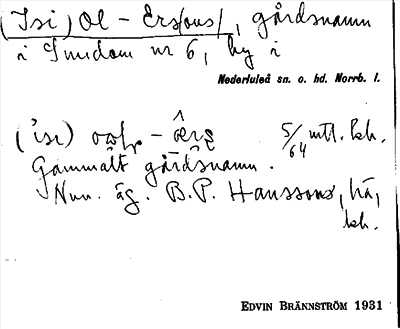 (Isi) Ol - Ers/ons/, gårdsnamn
i Smedom nr 6, by i
Nederluleå sn. o. hd. Norrb. l.
5/64 mtl. kh.
Gammalt gårdsnamn.
Nuv. äg. B.P. Hanssons, hä,
kh.
EDVIN BRÄNNSTRÖM 1931